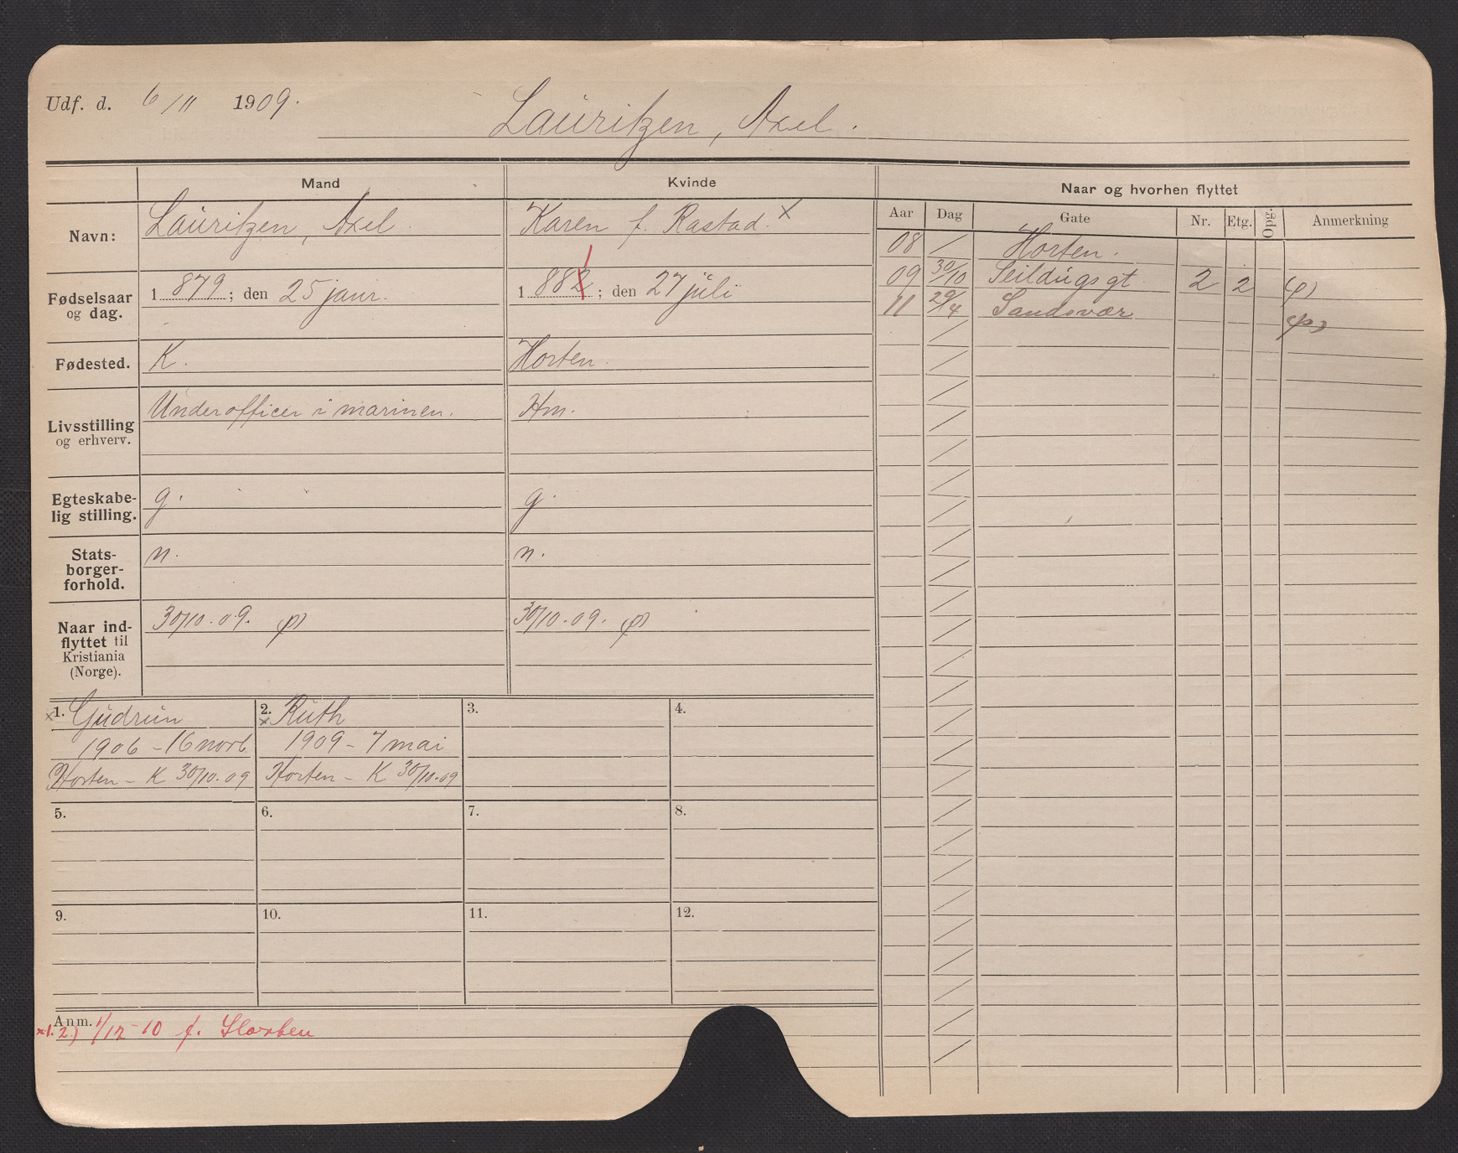 Udf. d. 6/11 1909.
Lauritzen, Axel.
Mand
Kvinde
Naar og hvorhen flyttet
Navn:
Lauritzen, Axel.
Karen f. Rastad. x
Aar Dag Gate Nr. Etg. Opg. Anmerkning
08 Horten.
09 30/10 Seildugsgt. 2 2
11 29/4 Sandsvær
Fødselsaar og dag.
1879; den 25 jaur.
1882; den 27 juli
1
Fødested.
K.
Horten.
Livsstilling og erhverv.
Underofficer i marinen.
Hm.
Egteskabe-
lig stilling.
g.
g.
Stats-
borger-
forhold.
n.
n.
Naar ind-
flyttet til
Kristiania
(Norge).
30/10.09.
30/10.09.
x 1. Gudrun
1906 - 16 novb
Horten - K 30/10.09
2. x Ruth
1909 - 7 mai
Horten - K 30/10.09
3.
4.
5.
6.
7.
8.
9.
10.
11.
12.
Anm.
x1.2) 1/12-10 f.